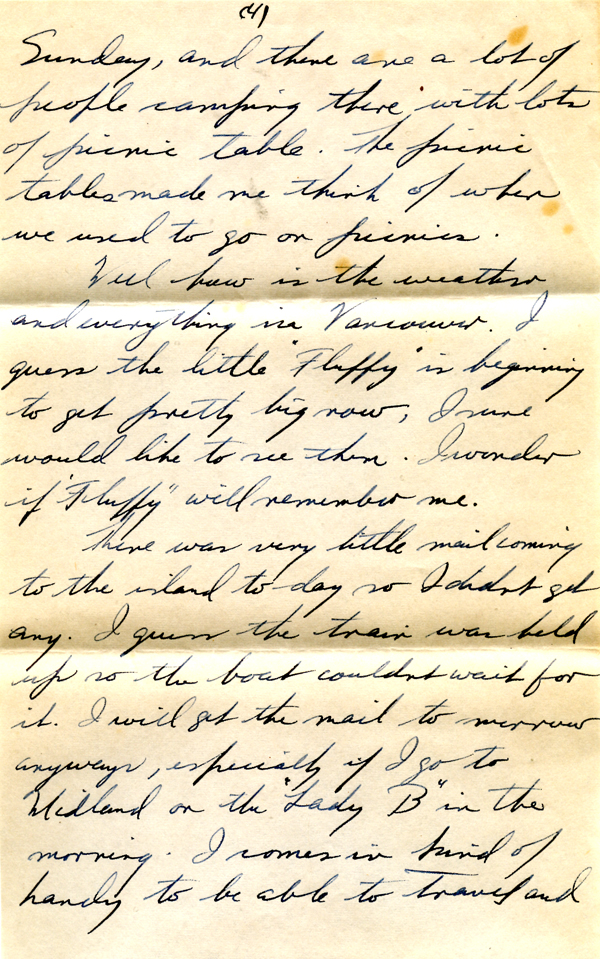 (4)
Sunday, and there are a lot of
people camping there with lots
of picnic table. The picnic
tables made me think of when
we used to go on picnics.
Well how is the weather
and everything in Vancouver. I
guess the little "Fluffy" is beginning
to get pretty big now, I sure
would like to see them. I wonder
if "Fluffy" will remember me.
There was very little mail coming
to the island to-day so I didnt get
any. I guess the train was held
up so the boat couldnt wait for
it. I will get the mail to morrow
anyways, especially if I go to
Midland on the "Lady B" in the
morning. I comes in kind of
handy to be able to travel and